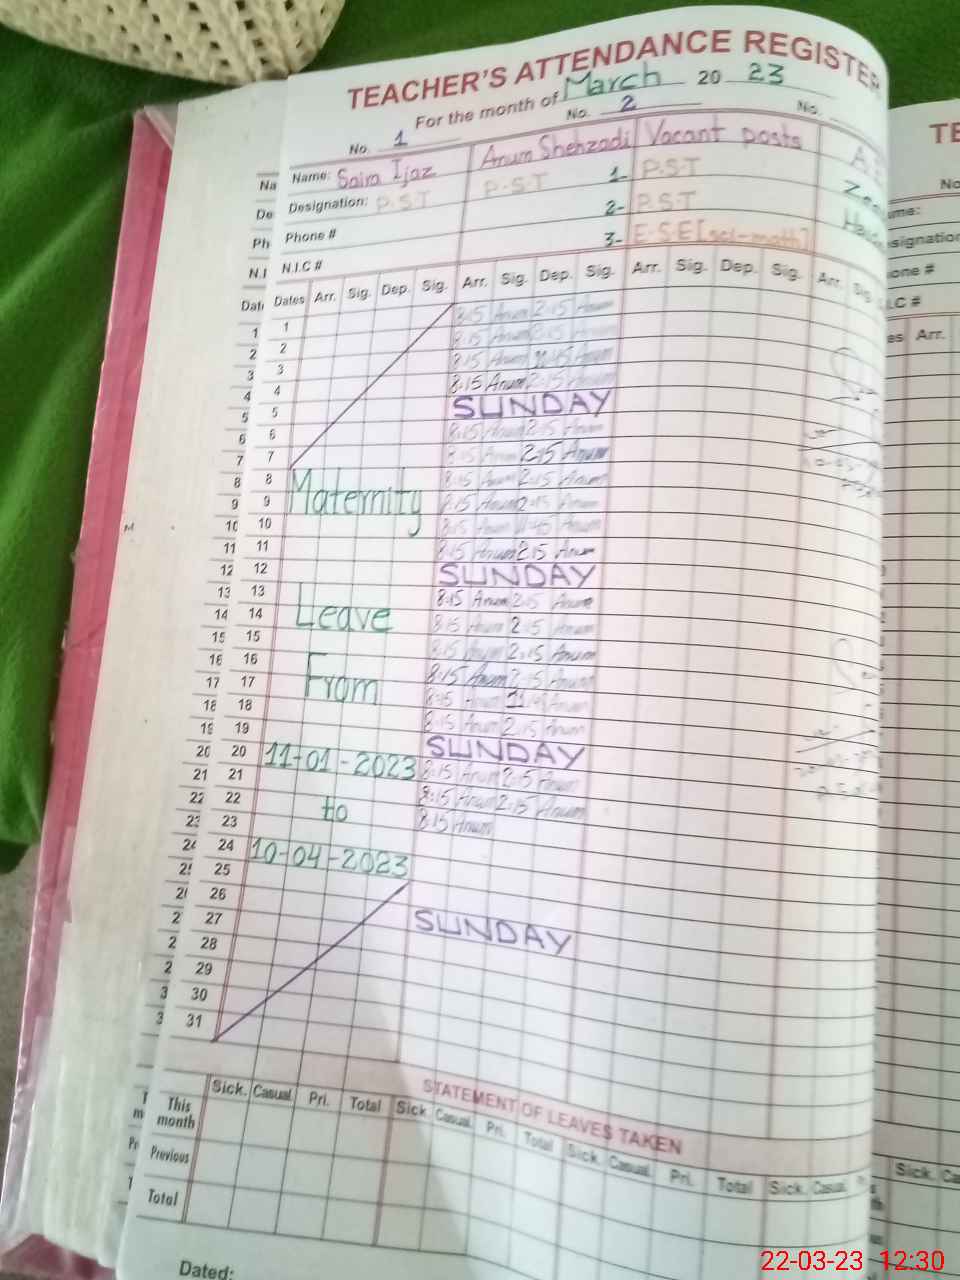 TEACHER'S ATTENDANCE REGISTER
For the month of March 20 23
No. 1 No. 2 No.
Name: Saira Ijaz Anum Shehzadi Vacant posts
Designation: P.S.T P.S.T 1- P.S.T
Phone # 2- P.S.T
N.I.C # 3- E.S.E [sci-math]
Dates Arr. Sig. Dep. Sig. Arr. Sig. Dep. Sig. Arr. Sig. Dep. Sig. Arr. Sig.
1 8:15 Anum 2:15 Anum
2 8:15 Anum 2:15 Anum
3 8:15 Anum Anum
4 8:15 Anum 2:15 Anum
5 SUNDAY
6 8:15 Anum 2:15 Anum
7 8:15 Anum 2:15 Anum
8 8:15 Anum 2:15 Anum
9 Maternity 8:15 Anum 2:15 Anum
10 8:15 Anum 11:45 Anum
11 8:15 Anum 2:15 Anum
12 SUNDAY
13 8:15 Anum 2:15 Anum
14 Leave 8:15 Anum 2:15 Anum
15 8:15 Anum 2:15 Anum
16 From 8:15 Anum 2:15 Anum
17 8:15 Anum 11:45 Anum
18 8:15 Anum 2:15 Anum
19 SUNDAY
20 11-01-2023 8:15 Anum 2:15 Anum
21 8:15 Anum 2:15 Anum
22 to 8:15 Anum
23
24 10-04-2023
25
26 SUNDAY
27
28
29
30
31
STATEMENT OF LEAVES TAKEN
Sick. Casual. Pri. Total Sick Casual. Pri. Total Sick. Casual. Pri. Total Sick. Casual.
This month
Previous
Total
Dated:
22-03-23 12:30